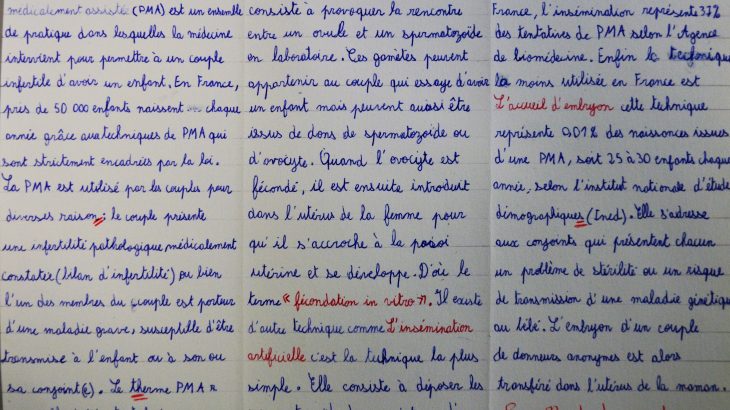 médicalement assistée (PMA) est un ensemble
de pratique dans lesquelles la médecine
intervient pour permettre à un couple
infertile d'avoir un enfant. En France,
près de 50 000 enfants naissent chaque
année grâce aux techniques de PMA qui
sont strictement encadrées par la loi.
La PMA est utilisé par les couples pour
diverses raison : le couple présente
une infertilité pathologique, médicalement
constatée (bilan d'infertilité) ou bien
l'un des membres du couple est porteur
d'une maladie grave, susceptible d'être
transmise à l'enfant ou à son ou
sa conjoint(e). Le therme PMA
consiste à provoquer la rencontre
entre un ovule et un spermatozoïde
en laboratoire. Ces gamètes peuvent
appartenir au couple qui essaye d'avoir
un enfant mais peuvent aussi être
issus de dons de spermatozoïde ou
d'ovocyte. Quand l'ovocyte est
fécondé, il est ensuite introduit
dans l'utérus de la femme pour
qu'il s'accroche à la paroi
utérine et se développe. D'où le
terme « fécondation in vitro ». Il existe
d'autre technique comme L'insémination
artificielle c'est la technique la plus
simple. Elle consiste à déposer les
France, l'insémination représente 37%
des tentatives de PMA selon l'Agence
de biomédecine. Enfin la technique
la moins utilisée en France est
L'accueil d'embryon cette technique
représente 0,01% des naissances issues
d'une PMA, soit 25 à 30 enfants chaque
année, selon l'institut nationale d'étude
démographiques (Ined). Elle s'adresse
aux conjoints qui présentent chacun
un problème de stérilité ou un risque
de transmission d'une maladie génétique
au bébé. L'embryon d'un couple
de donneurs anonymes est alors
transféré dans l'utérus de la maman.